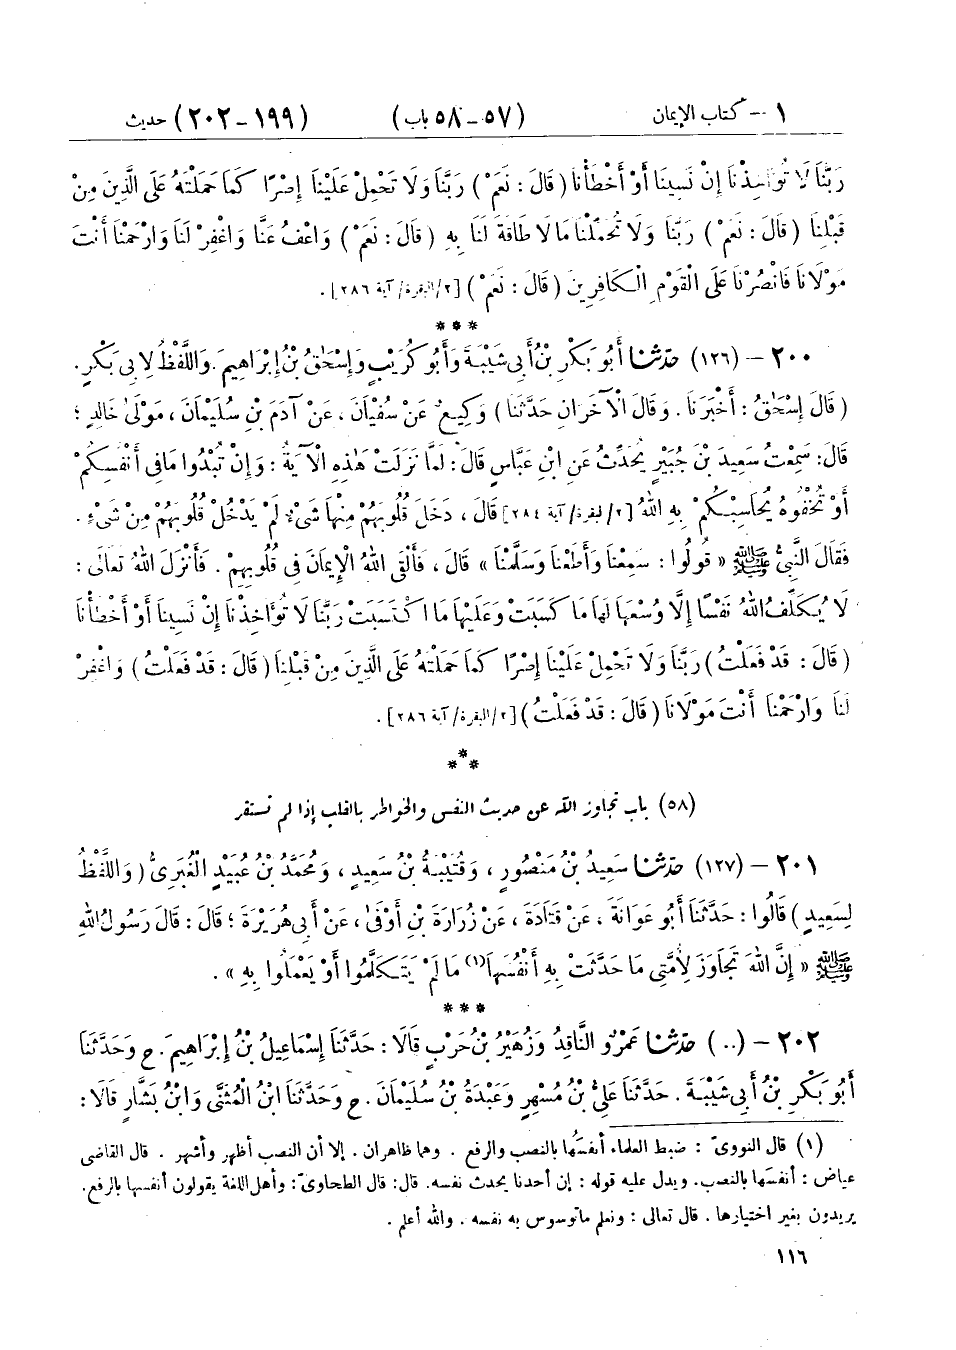 ١ – كتاب الإيمان (٥٧ – ٥٨ باب) (١٩٩ – ٢٠٢) حديث
رَبَّنَا لَا تُؤَاخِذْنَا إِنْ نَسِينَا أَوْ أَخْطَأْنَا ( قَالَ : نَعَمْ ) رَبَّنَا وَلَا تَحْمِلْ عَلَيْنَا إِصْرًا كَمَا حَمَلْتَهُ عَلَى الَّذِينَ مِنْ
قَبْلِنَا ( قَالَ : نَعَمْ ) رَبَّنَا وَلَا تُحَمِّلْنَا مَا لَا طَاقَةَ لَنَا بِهِ ( قَالَ : نَعَمْ ) وَاعْفُ عَنَّا وَاغْفِرْ لَنَا وَارْحَمْنَا أَنْتَ
مَوْلَانَا فَانْصُرْنَا عَلَى الْقَوْمِ الْكَافِرِينَ ( قَالَ : نَعَمْ ) [٢/البقرة/ آية ٢٨٦] .
***
٢٠٠ – (١٢٦) حَدَّثَنَا أَبُو بَكْرِ بْنُ أَبِي شَيْبَةَ وَأَبُو كُرَيْبٍ وَإِسْحَاقُ بْنُ إِبْرَاهِيمَ . وَاللَّفْظُ لِأَبِي بَكْرٍ .
( قَالَ إِسْحَاقُ : أَخْبَرَنَا . وَقَالَ الْآخَرَانِ حَدَّثَنَا ) وَكِيعٌ عَنْ سُفْيَانَ ، عَنْ آدَمَ بْنِ سُلَيْمَانَ ، مَوْلَى خَالِدٍ ؛
قَالَ : سَمِعْتُ سَعِيدَ بْنَ جُبَيْرٍ يُحَدِّثُ عَنِ ابْنِ عَبَّاسٍ قَالَ : لَمَّا نَزَلَتْ هَٰذِهِ الْآيَةُ : وَإِنْ تُبْدُوا مَا فِي أَنْفُسِكُمْ
أَوْ تُخْفُوهُ يُحَاسِبْكُمْ بِهِ اللهُ [٢/ البقرة/ آية ٢٨٤] قَالَ ، دَخَلَ قُلُوبَهُمْ مِنْهَا شَيْءٌ لَمْ يَدْخُلْ قُلُوبَهُمْ مِنْ شَيْءٍ .
فَقَالَ النَّبِيُّ ﷺ « قُولُوا : سَمِعْنَا وَأَطَعْنَا وَسَلَّمْنَا » قَالَ ، فَأَلْقَى اللهُ الْإِيمَانَ فِي قُلُوبِهِمْ . فَأَنْزَلَ اللهُ تَعَالَى :
لَا يُكَلِّفُ اللهُ نَفْسًا إِلَّا وُسْعَهَا لَهَا مَا كَسَبَتْ وَعَلَيْهَا مَا اكْتَسَبَتْ رَبَّنَا لَا تُؤَاخِذْنَا إِنْ نَسِينَا أَوْ أَخْطَأْنَا
( قَالَ : قَدْ فَعَلْتُ ) رَبَّنَا وَلَا تَحْمِلْ عَلَيْنَا إِصْرًا كَمَا حَمَلْتَهُ عَلَى الَّذِينَ مِنْ قَبْلِنَا ( قَالَ : قَدْ فَعَلْتُ ) وَاغْفِرْ
لَنَا وَارْحَمْنَا أَنْتَ مَوْلَانَا ( قَالَ : قَدْ فَعَلْتُ ) [٢/البقرة/ آية ٢٨٦] .
***
(٥٨) باب تجاوز الله عن حديث النفس والخواطر بالقلب إذا لم تستقر
٢٠١ – (١٢٧) حَدَّثَنَا سَعِيدُ بْنُ مَنْصُورٍ ، وَقُتَيْبَةُ بْنُ سَعِيدٍ ، وَمُحَمَّدُ بْنُ عُبَيْدٍ الْغُبَرِيُّ ( وَاللَّفْظُ
لِسَعِيدٍ ) قَالُوا : حَدَّثَنَا أَبُو عَوَانَةَ ، عَنْ قَتَادَةَ ، عَنْ زُرَارَةَ بْنِ أَوْفَى ، عَنْ أَبِي هُرَيْرَةَ ؛ قَالَ : قَالَ رَسُولُ اللهِ
ﷺ « إِنَّ اللهَ تَجَاوَزَ لِأُمَّتِي مَا حَدَّثَتْ بِهِ أَنْفُسَهَا(١) مَا لَمْ يَتَكَلَّمُوا أَوْ يَعْمَلُوا بِهِ » .
***
٢٠٢ – (..) حَدَّثَنَا عَمْرٌو النَّاقِدُ وَزُهَيْرُ بْنُ حَرْبٍ قَالَا : حَدَّثَنَا إِسْمَاعِيلُ بْنُ إِبْرَاهِيمَ . ح وَحَدَّثَنَا
أَبُو بَكْرِ بْنُ أَبِي شَيْبَةَ . حَدَّثَنَا عَلِيُّ بْنُ مُسْهِرٍ وَعَبْدَةُ بْنُ سُلَيْمَانَ . ح وَحَدَّثَنَا ابْنُ الْمُثَنَّى وَابْنُ بَشَّارٍ قَالَا :
(١) قال النوويّ : ضبط العلماء أنفسَُها بالنصب والرفع . وهما ظاهران . إلا أن النصب أظهر وأشهر . قال القاضى
عياض : أنفسَها بالنصب. ويدل عليه قوله : إن أحدنا يحدث نفسه. قال: قال الطحاوىّ: وأهل اللغة يقولون أنفسها بالرفع.
يريدون بغير اختيارها . قال تعالى : ونعلم ما توسوس به نفسه . والله أعلم .
١١٦